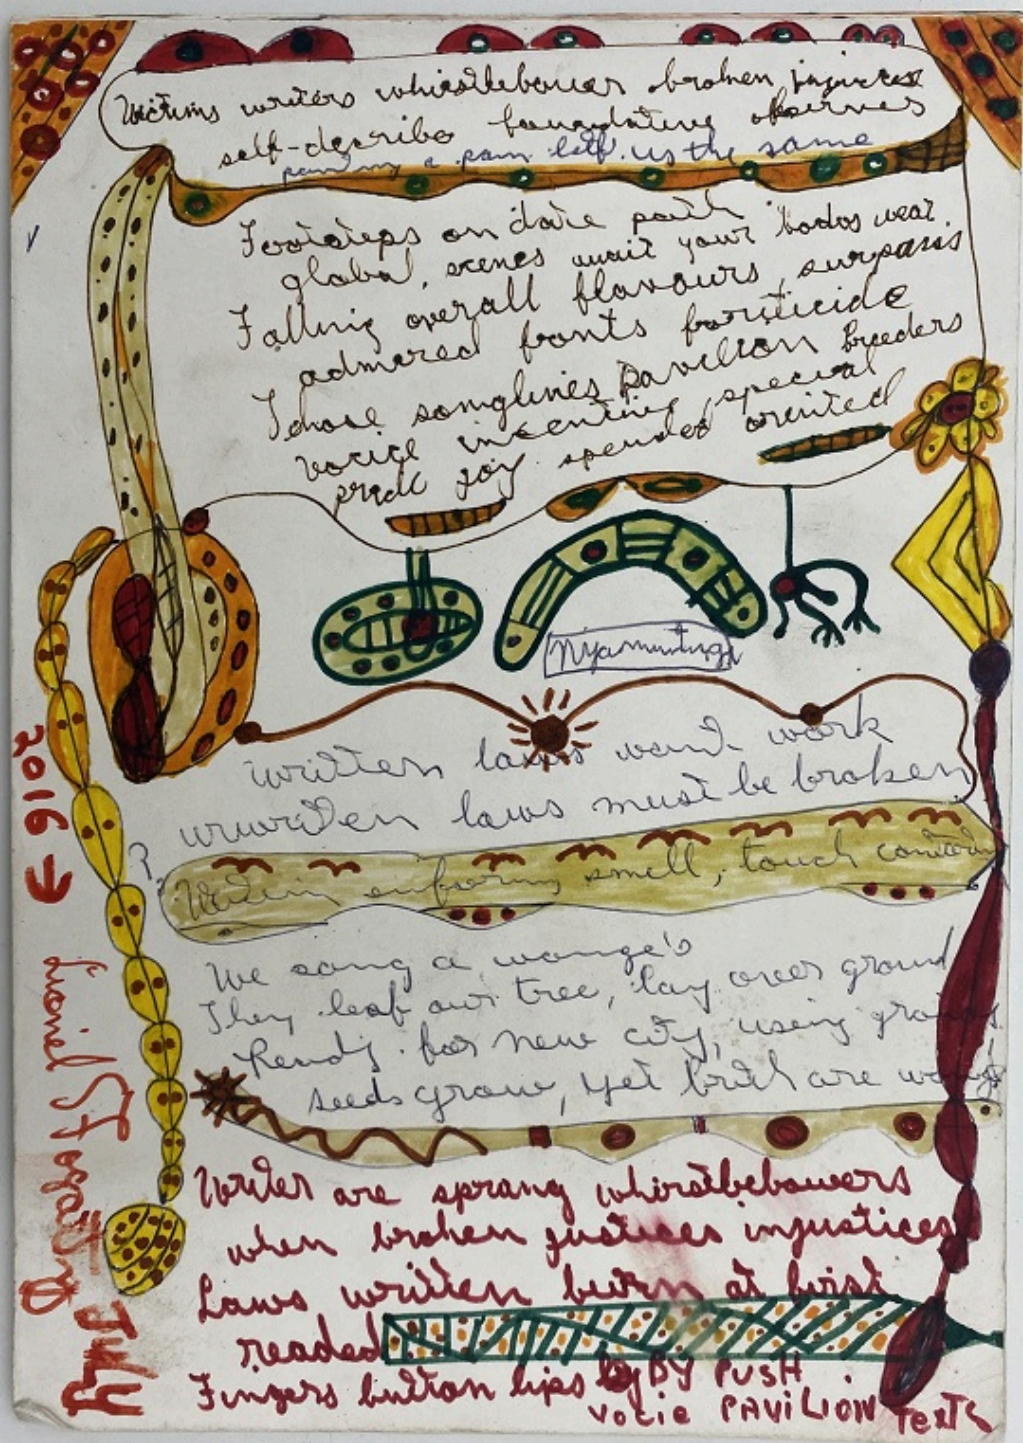 Victims writers whistlebower broken injuries
self-describe
painting a pain left us the same
Footsteps on date path
global, scenes await your bodos wear
Falling overall flavours, surpass
admired fonts
Those songlines Pavilion Breeders
voice incenting, special
pride joy spended orinted
Nyamuntugi
written laws want work
unwritten laws must be broken
smell, touch
We song a wonge's
They leaf our tree, lay over ground
Ready for new city, using
seeds grow, yet birth are
Writer are sprang whirstbebowers
when broken justices injustices
Laws written burn at birst
readed
Fingers button lips by BY PUSH
vocie PAVILION TEXTS
2016 →
Lionel Fogarty July